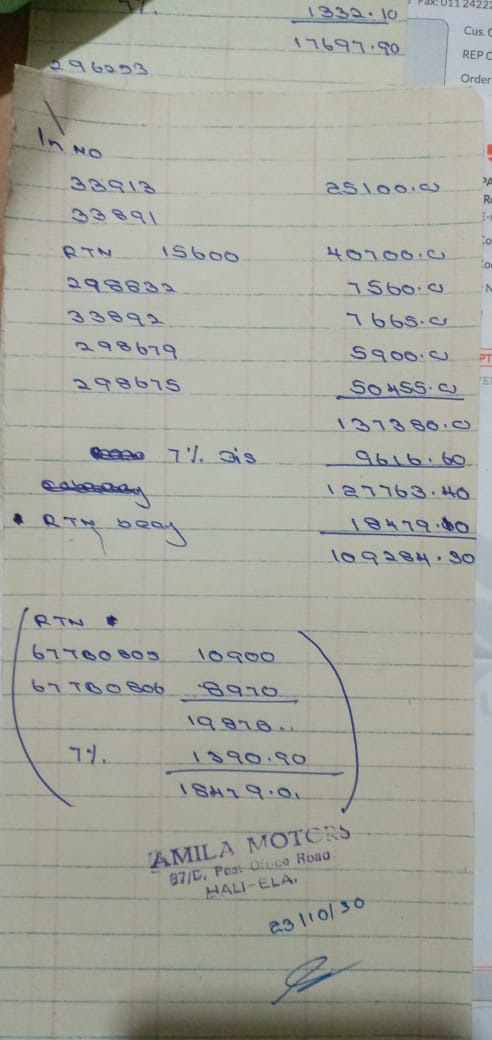 7%. 1332.10
17697.90
296293
Fax: 011 2422
Cus. C
REP C
Order
In NO
33913 25100.00
33891
RTN 15600 40700.00
298832 7560.00
33892 7665.00
298679 5900.00
298675 50455.00
137380.00
7%. Dis 9616.60
127763.40
RTN beay 18479.10
109284.30
RTN
67780805 10900
67780806 8970
19870..
7%. 1390.90
18479.01
AMILA MOTORS
87/C, Post Office Road
HALI-ELA.
23/10/30